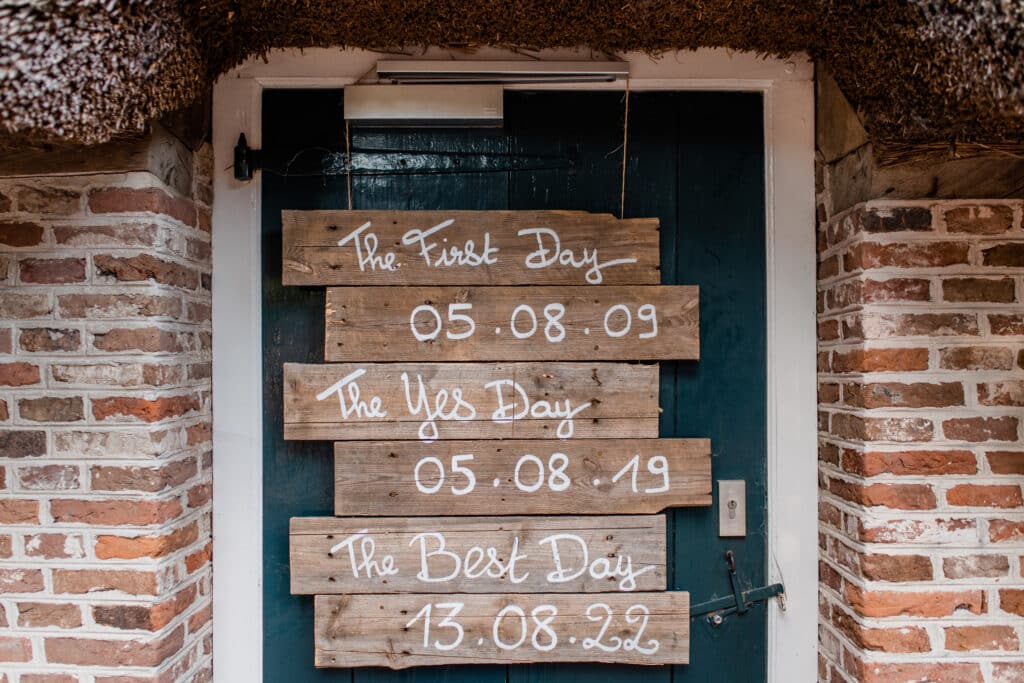 The First Day
05.08.09
The Yes Day
05.08.19
The Best Day
13.08.22